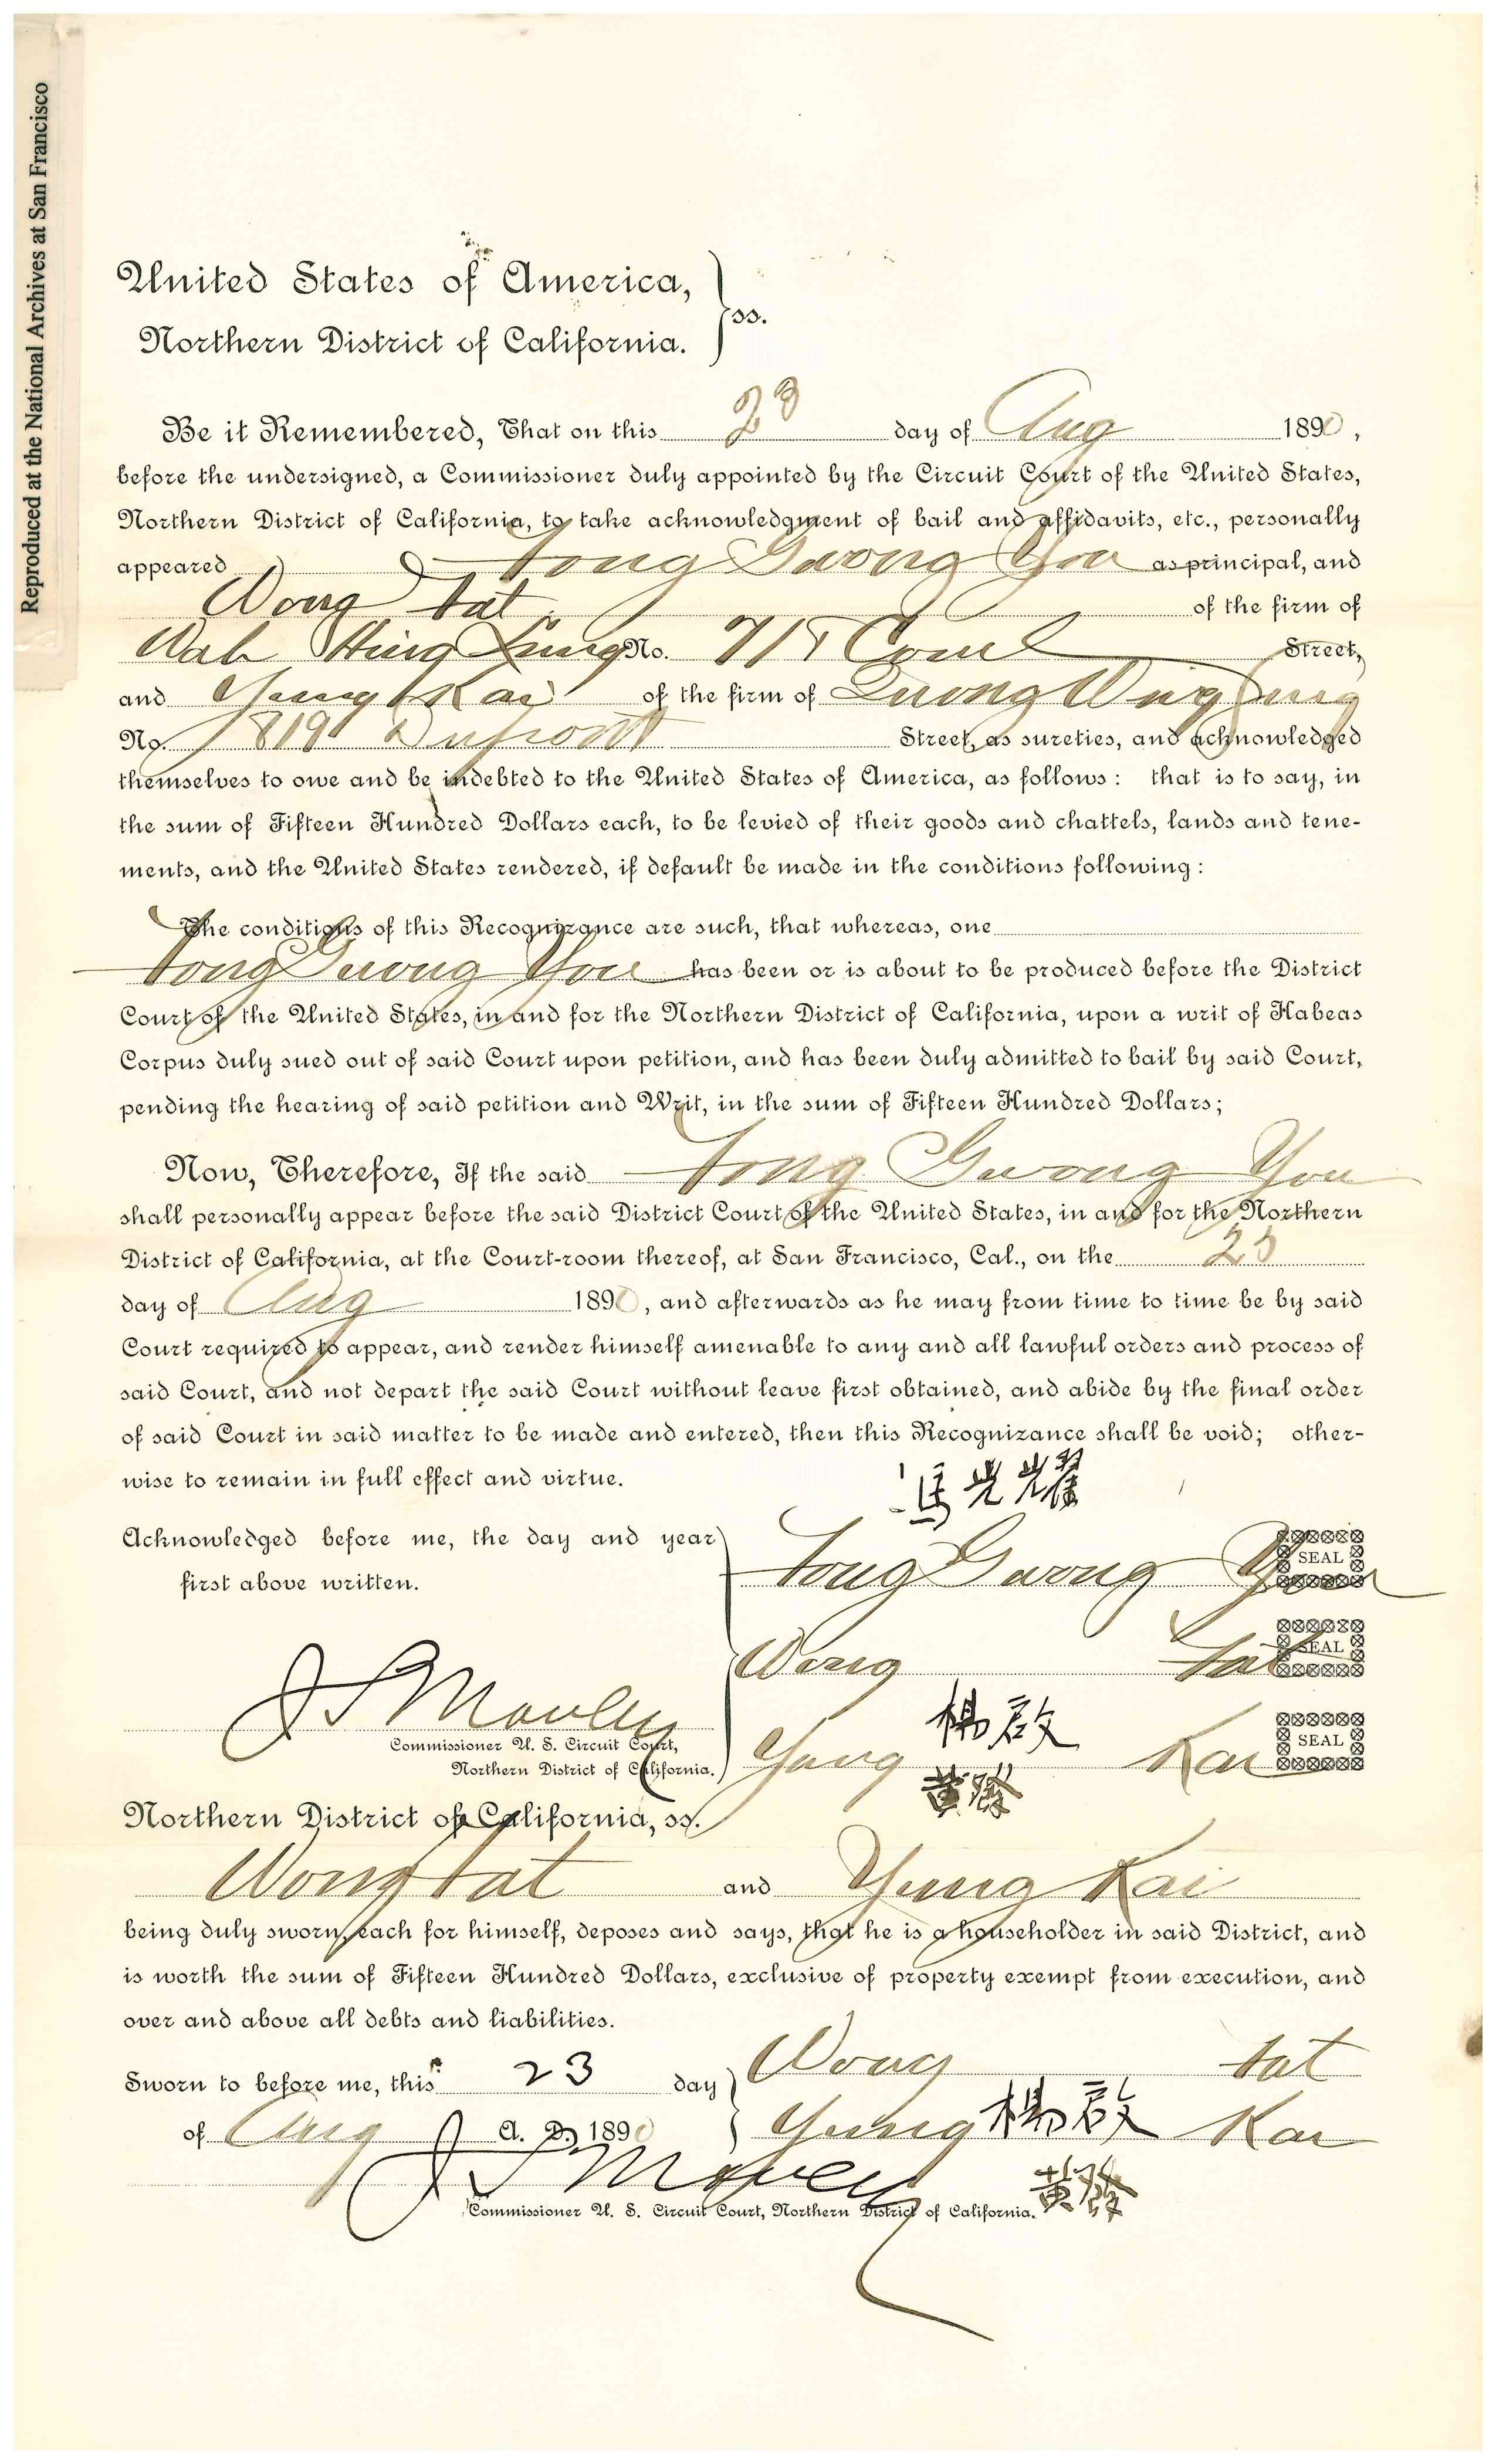 Reproduced at the National Archives at San Francisco
United States of America,
Northern District of California. } ss.
Be it Remembered, That on this 23 day of Aug 1890,
before the undersigned, a Commissioner duly appointed by the Circuit Court of the United States,
Northern District of California, to take acknowledgment of bail and affidavits, etc., personally
appeared Fong Gwong You as principal, and
Wong Fat of the firm of
Wah Hing Lung No. 715 Coml Street,
and Yung Kai of the firm of Wing Lung
No. 819 Dupont Street, as sureties, and acknowledged
themselves to owe and be indebted to the United States of America, as follows: that is to say, in
the sum of Fifteen Hundred Dollars each, to be levied of their goods and chattels, lands and tene-
ments, and the United States rendered, if default be made in the conditions following:
The conditions of this Recognizance are such, that whereas, one
Fong Gwong You has been or is about to be produced before the District
Court of the United States, in and for the Northern District of California, upon a writ of Habeas
Corpus duly sued out of said Court upon petition, and has been duly admitted to bail by said Court,
pending the hearing of said petition and Writ, in the sum of Fifteen Hundred Dollars;
Now, Therefore, If the said Fong Gwong You
shall personally appear before the said District Court of the United States, in and for the Northern
District of California, at the Court-room thereof, at San Francisco, Cal., on the 23
day of Aug 1890, and afterwards as he may from time to time be by said
Court required to appear, and render himself amenable to any and all lawful orders and process of
said Court, and not depart the said Court without leave first obtained, and abide by the final order
of said Court in said matter to be made and entered, then this Recognizance shall be void; other-
wise to remain in full effect and virtue.
馮光耀
Acknowledged before me, the day and year
first above written.
Fong Gwong You SEAL
Wong Fat SEAL
楊啟
Yung Kai SEAL
黃發
Commissioner U. S. Circuit Court,
Northern District of California.
Northern District of California, ss.
Wong Fat and Yung Kai
being duly sworn, each for himself, deposes and says, that he is a householder in said District, and
is worth the sum of Fifteen Hundred Dollars, exclusive of property exempt from execution, and
over and above all debts and liabilities.
Sworn to before me, this 23 day
of Aug A. D. 1890
Wong Fat
Yung 楊啟 Kai
黃發
Commissioner U. S. Circuit Court, Northern District of California.